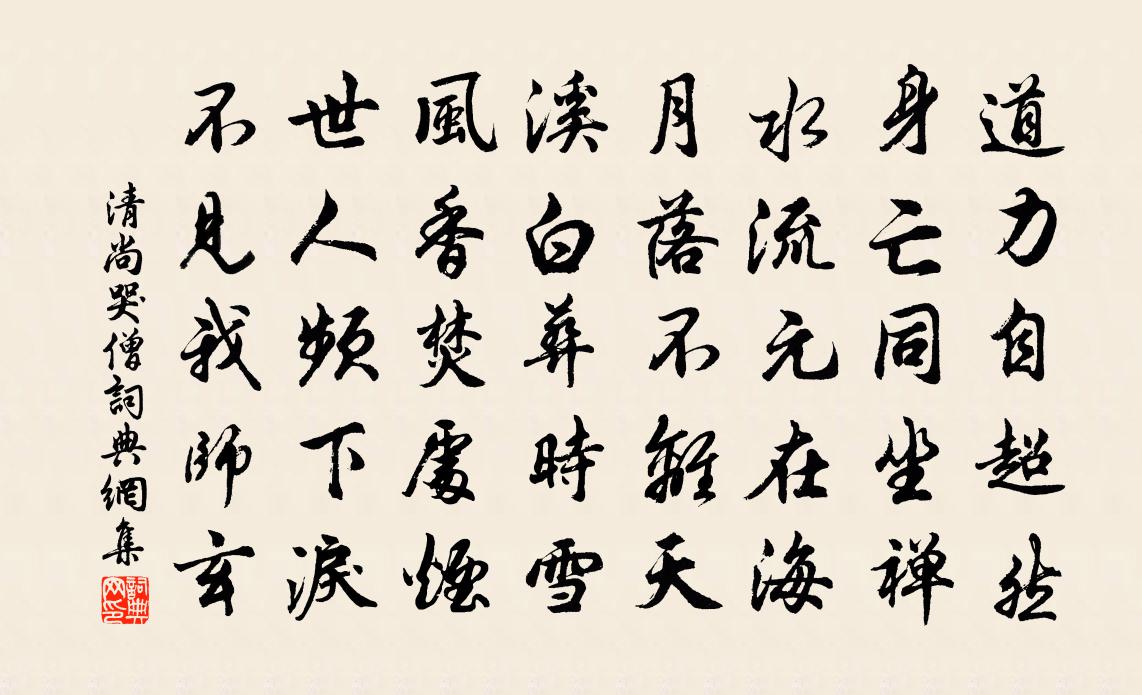 道力自超然
身亡同坐禅
水流元在海
月落不離天
溪白葬時雪
風香焚處煙
世人頻下淚
不見我師玄
清尚哭僧詞典網集
詞典网印